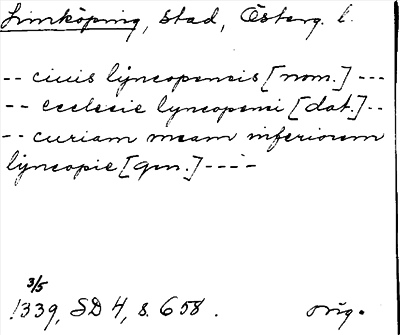 Linköping, stad, Österg. l.
-- ciuis lyncopensis [nom.] ---
-- ecclesie lyncopensi [dat.]--
-- curiam meam inferiorem
lyncopie [gen.] -----
3/5
1339, SD 4, s. 658. orig.